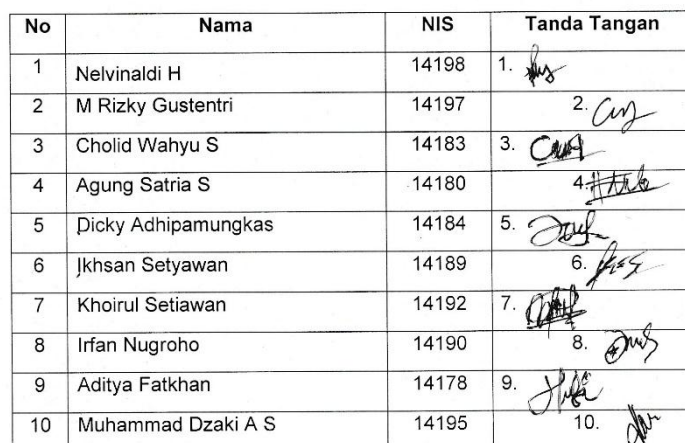 No Nama NIS Tanda Tangan
1 Nelvinaldi H 14198 1.
2 M Rizky Gustentri 14197 2.
3 Cholid Wahyu S 14183 3.
4 Agung Satria S 14180 4.
5 Dicky Adhipamungkas 14184 5.
6 Ikhsan Setyawan 14189 6.
7 Khoirul Setiawan 14192 7.
8 Irfan Nugroho 14190 8.
9 Aditya Fatkhan 14178 9.
10 Muhammad Dzaki A S 14195 10.